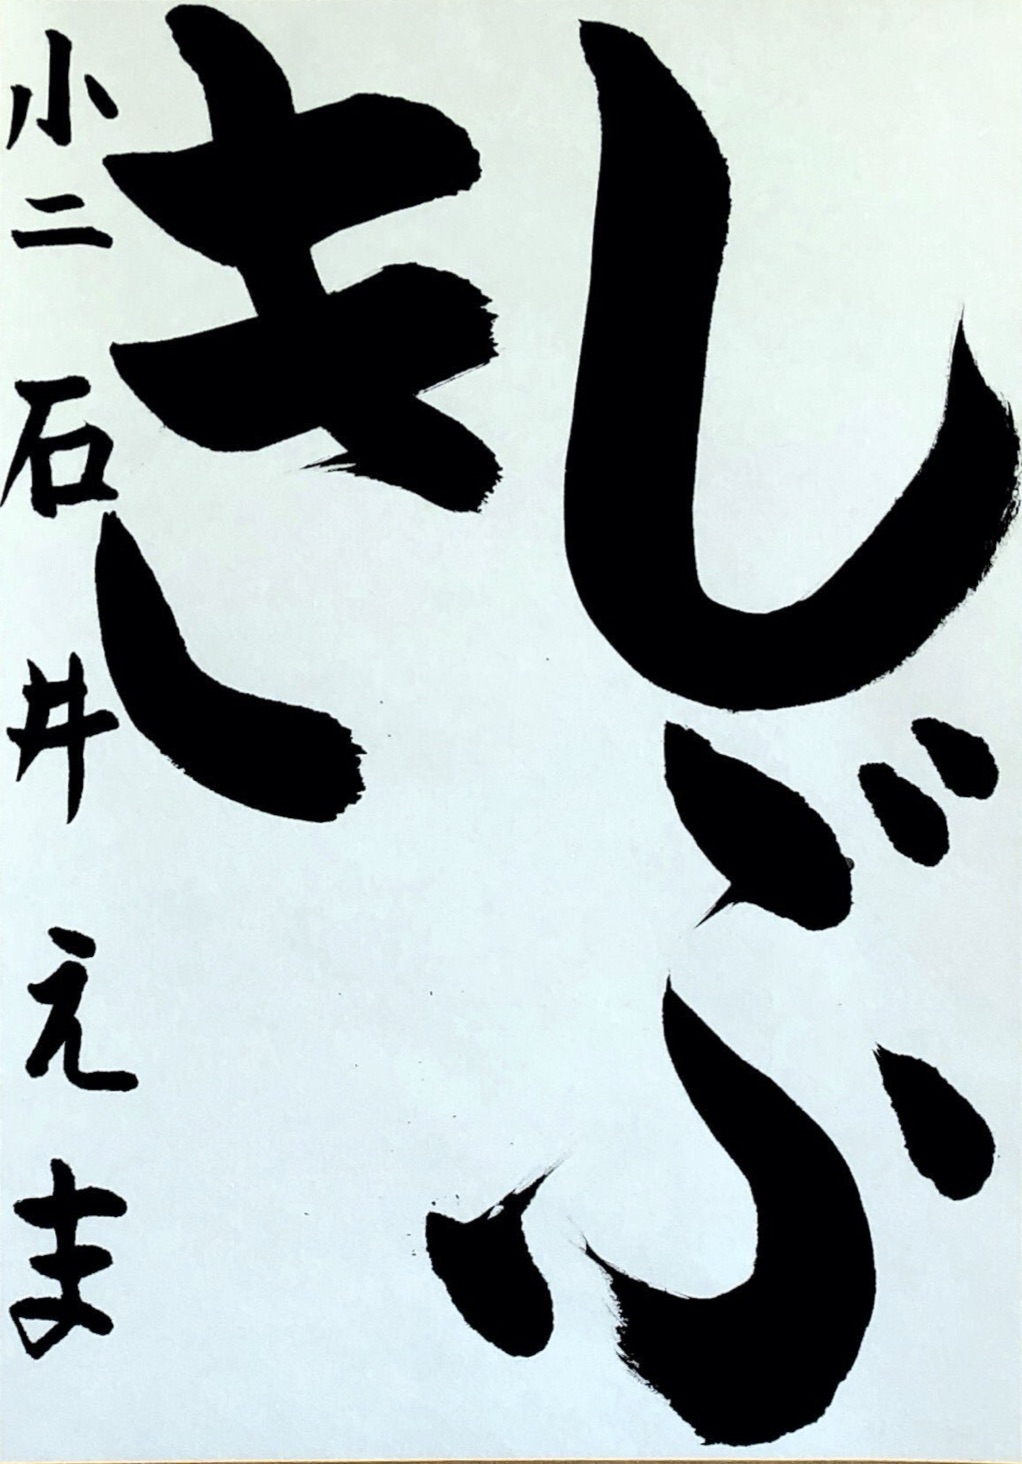 しぶ
き
小二 石井 えま